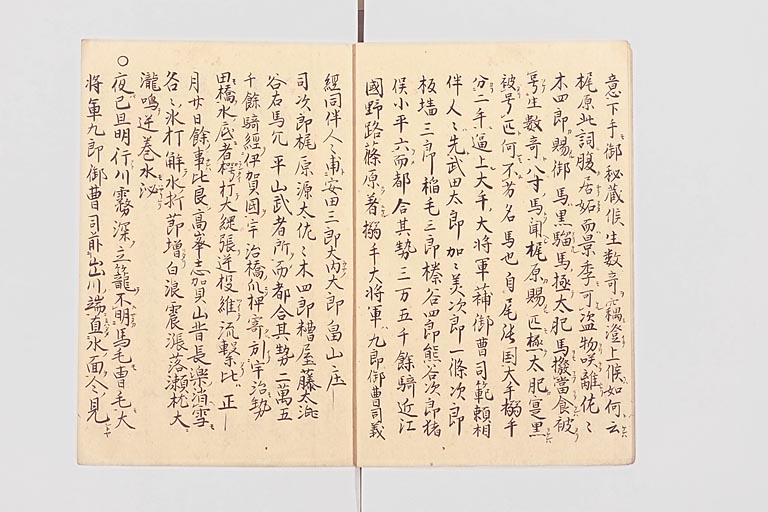 意下手御秘蔵候生数奇竊澄上候如何云
梶原此詞腹居妬而景季可盗物咲離佐々
木四郎賜御馬黒騮馬極太肥馬撥當食被
号生数奇八寸馬聞梶原賜一匹極太肥寔黒
被号一匹何不劣名馬也自尾張国大手搦手
分二手逼上大手大将軍蒲御曹司範頼相
伴人々先武田太郎加々美次郎一條次郎
板垣三郎稲毛三郎榛谷四郎熊谷次郎猪
俣小平六而都合其勢三万五千餘騎近江
國野路篠原著搦手大将軍九郎御曹司義
經同伴人々甫安田三郎大内太郎畠山庄一
司次郎梶原源太佐々木四郎糟屋藤太渋
谷右馬允平山武者所而都合其勢二萬五
千餘騎經伊賀國宇治橋爪押寄於宇治勢
田橋水底者樗打大縄張逆投維流繫比正一
月廿日餘事比良高峯志賀山昔長樂消雪
谷々氷打解水折節増白浪震漲落瀬枕大
瀧鳴逆巻水泌
○夜已且明行川霧深立籠不明馬毛曹毛大
将軍九郎御曹司前出川端直水面今見